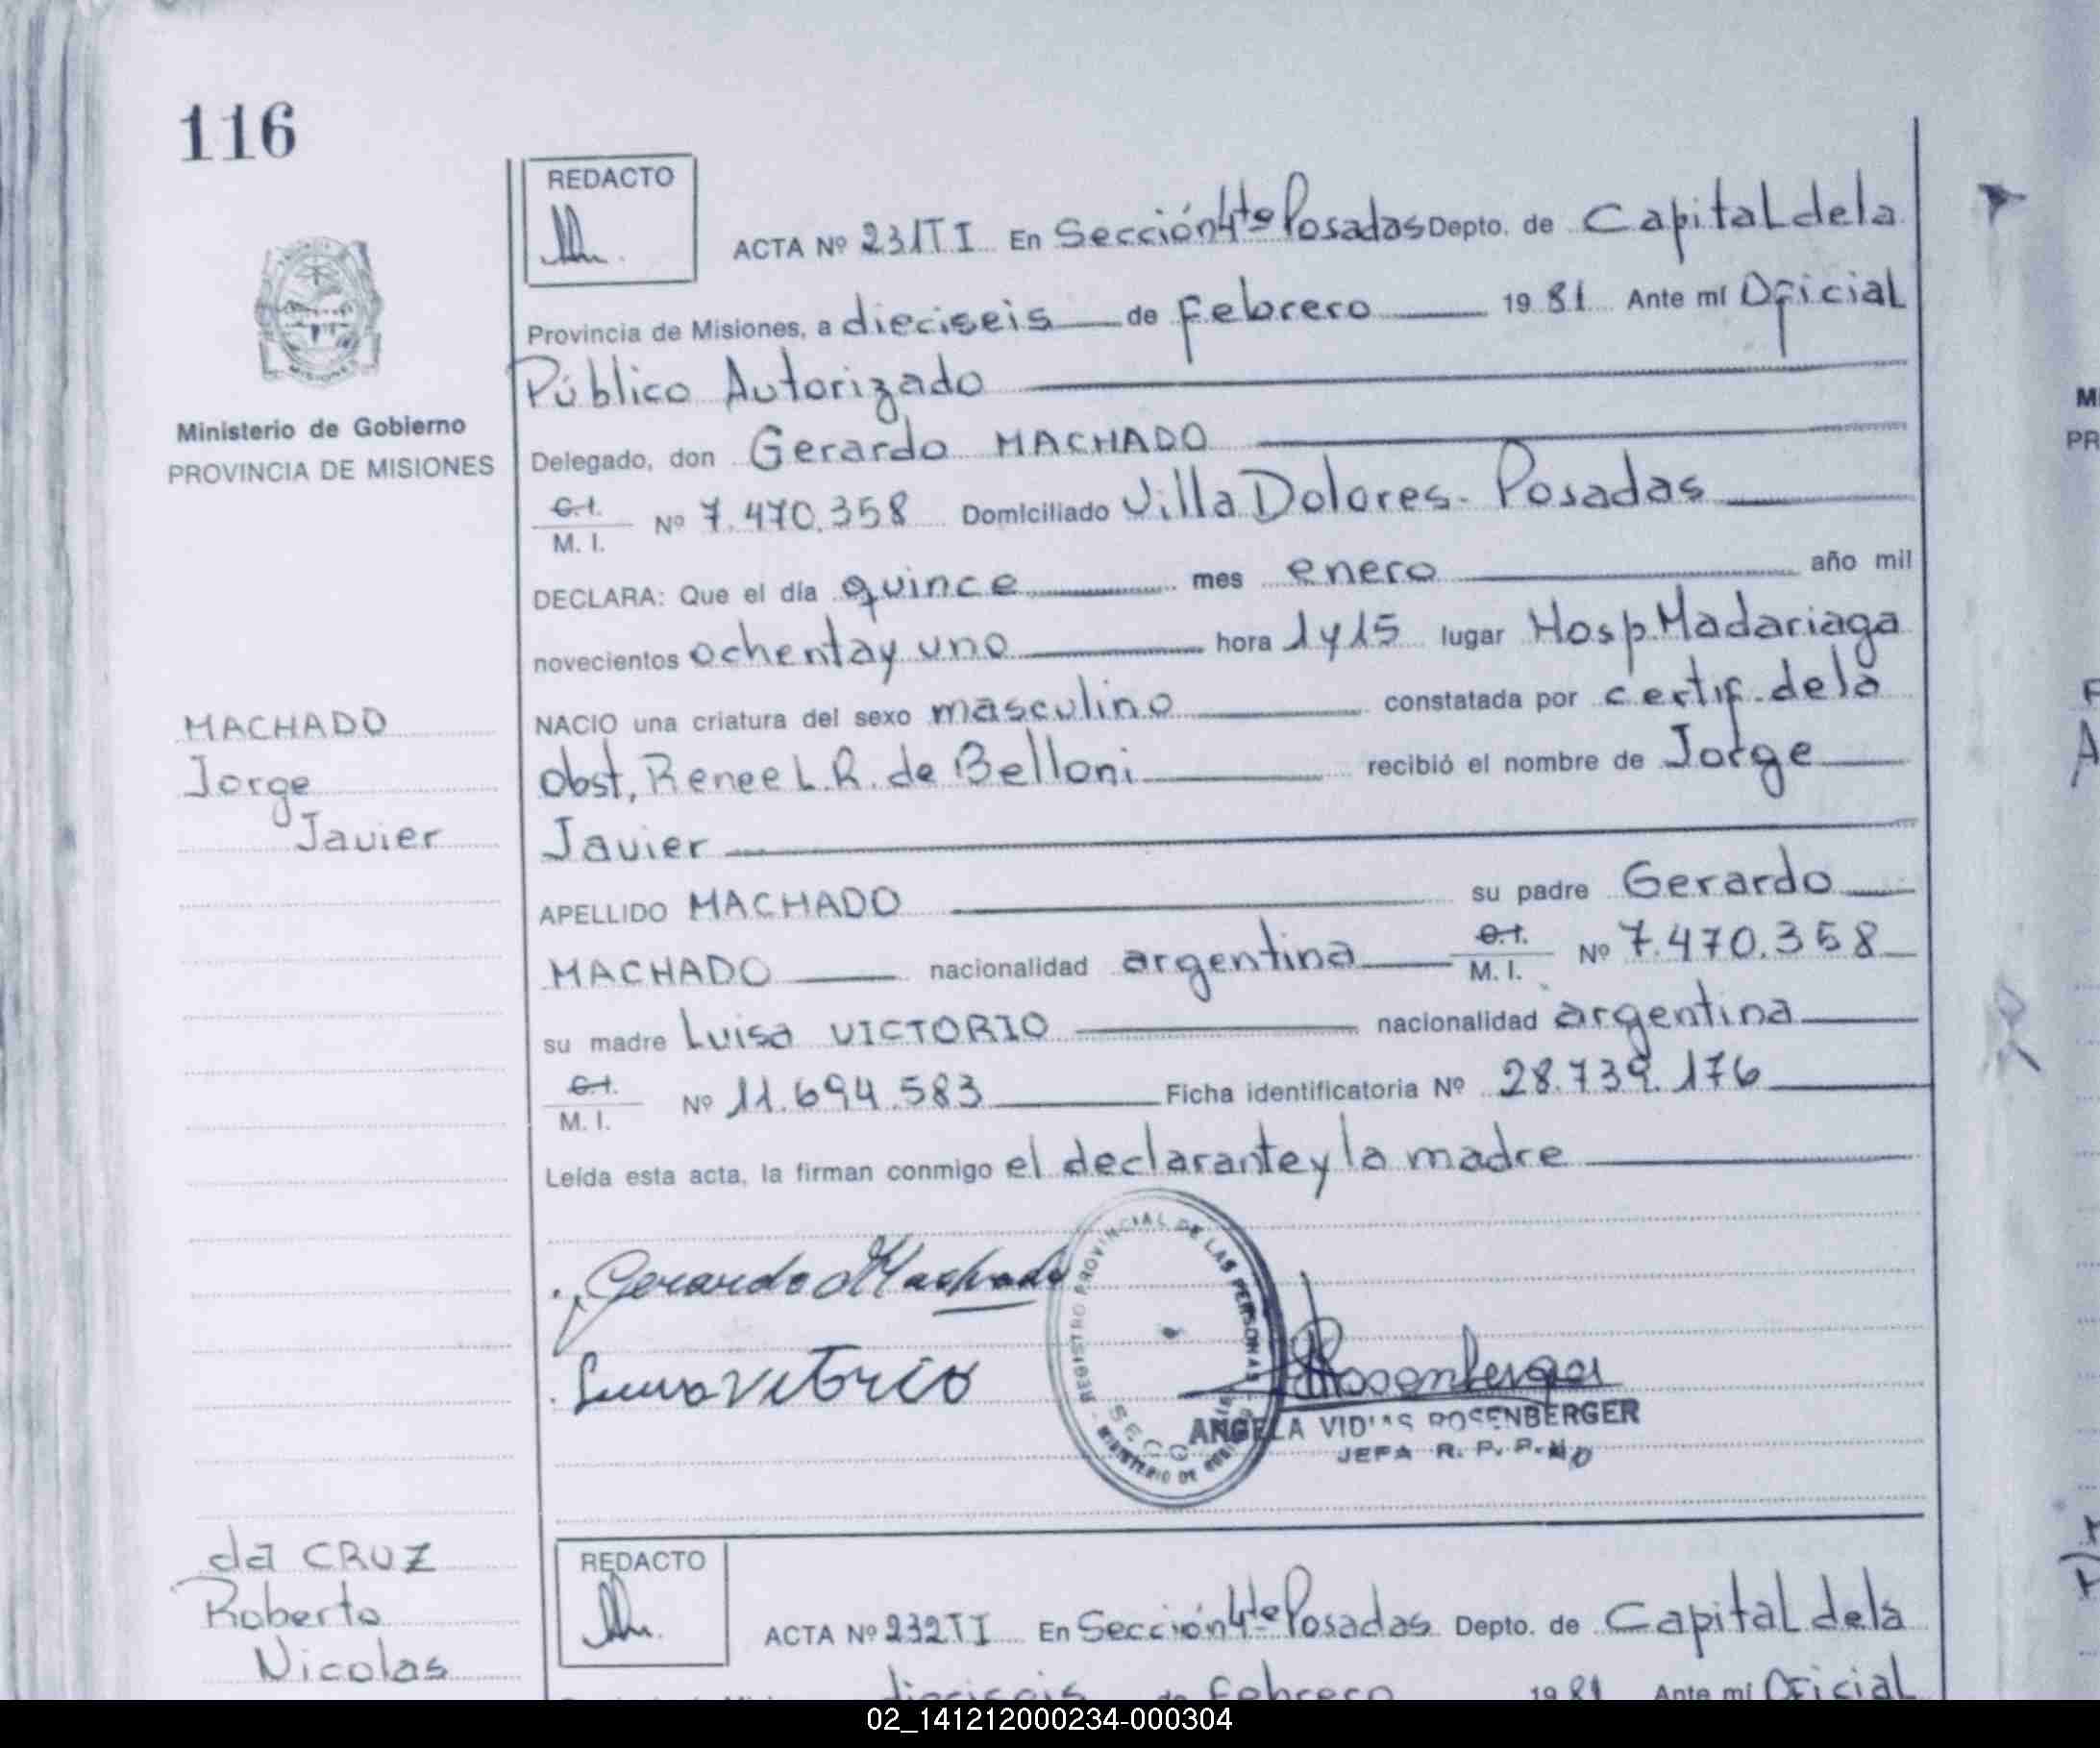 116
REDACTO
ACTA Nº 231TI En Sección 4ta Posadas Depto. de Capital dela
Provincia de Misiones, a dieciseis de Febrero 1981 Ante mí Oficial
Público Autorizado
Ministerio de Gobierno
PROVINCIA DE MISIONES
Delegado, don Gerardo MACHADO
C.I.
M. I. Nº 7.470.358 Domiciliado Villa Dolores - Posadas
DECLARA: Que el día quince mes enero año mil
novecientos ochentay uno hora 1y15 lugar Hosp. Madariaga
MACHADO
Jorge
Javier
NACIO una criatura del sexo masculino constatada por certif. dela
obst, Renee L.R. de Belloni recibió el nombre de Jorge
Javier
APELLIDO MACHADO su padre Gerardo
MACHADO nacionalidad argentina C.I. M. I. Nº 7.470.358
su madre Luisa VICTORIO nacionalidad argentina
C.I.
M. I. Nº 11.694.583 Ficha identificatoria Nº 28.739.176
Leída esta acta, la firman conmigo el declarante y la madre
Gerardo Machado
REGISTRO PROVINCIAL DE LAS PERSONAS
MINISTERIO DE
SECC
Rosenberger
ANGELA ROSENBERGER
JEFA R. P. P.
da CRUZ
Roberto
Nicolas
REDACTO
ACTA Nº 232TI En Sección 4ta Posadas Depto. de Capital dela
dieciseis de Febrero 1981 Ante mí Oficial
02_141212000234-000304